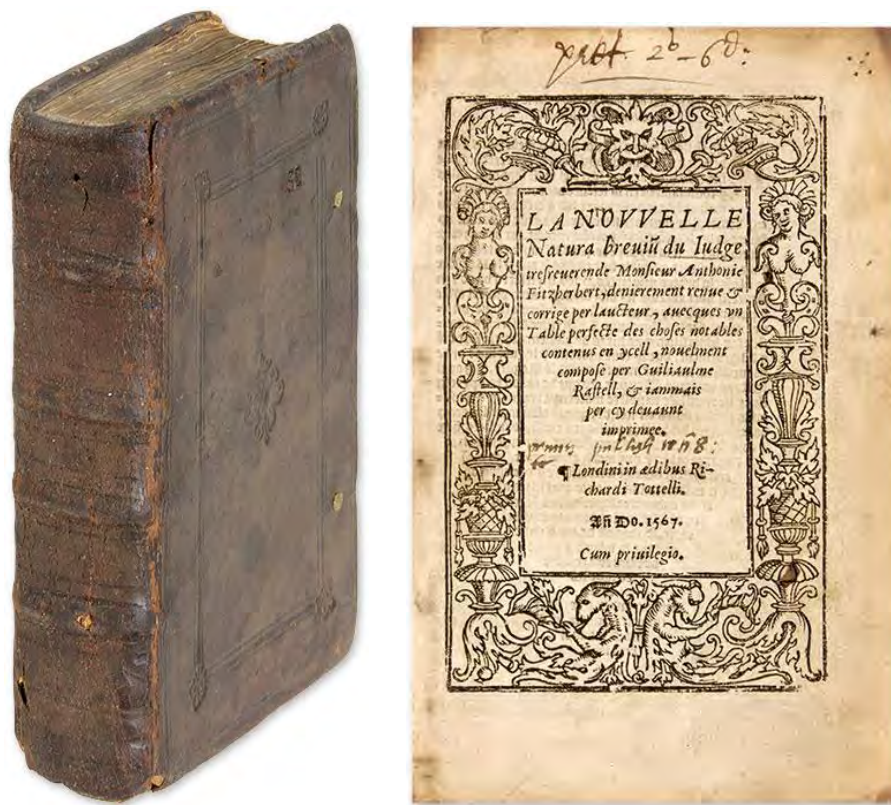 pret. 2s – 6d:
LA NOVVELLE
Natura breviũ du Iudge
tresreuerende Monſieur Anthonie
Fitzherbert, denierement renue &
corrige per laucteur, auecques vn
Table perfecte des choſes notables
contenus en ycell, nouelment
compoſe per Guiliaulme
Raſtell, & iammais
per cy deuaunt
imprimee.
¶ Londini in ædibus Ri-
chardi Tottelli.
Añ DO. 1567.
Cum priuilegio.